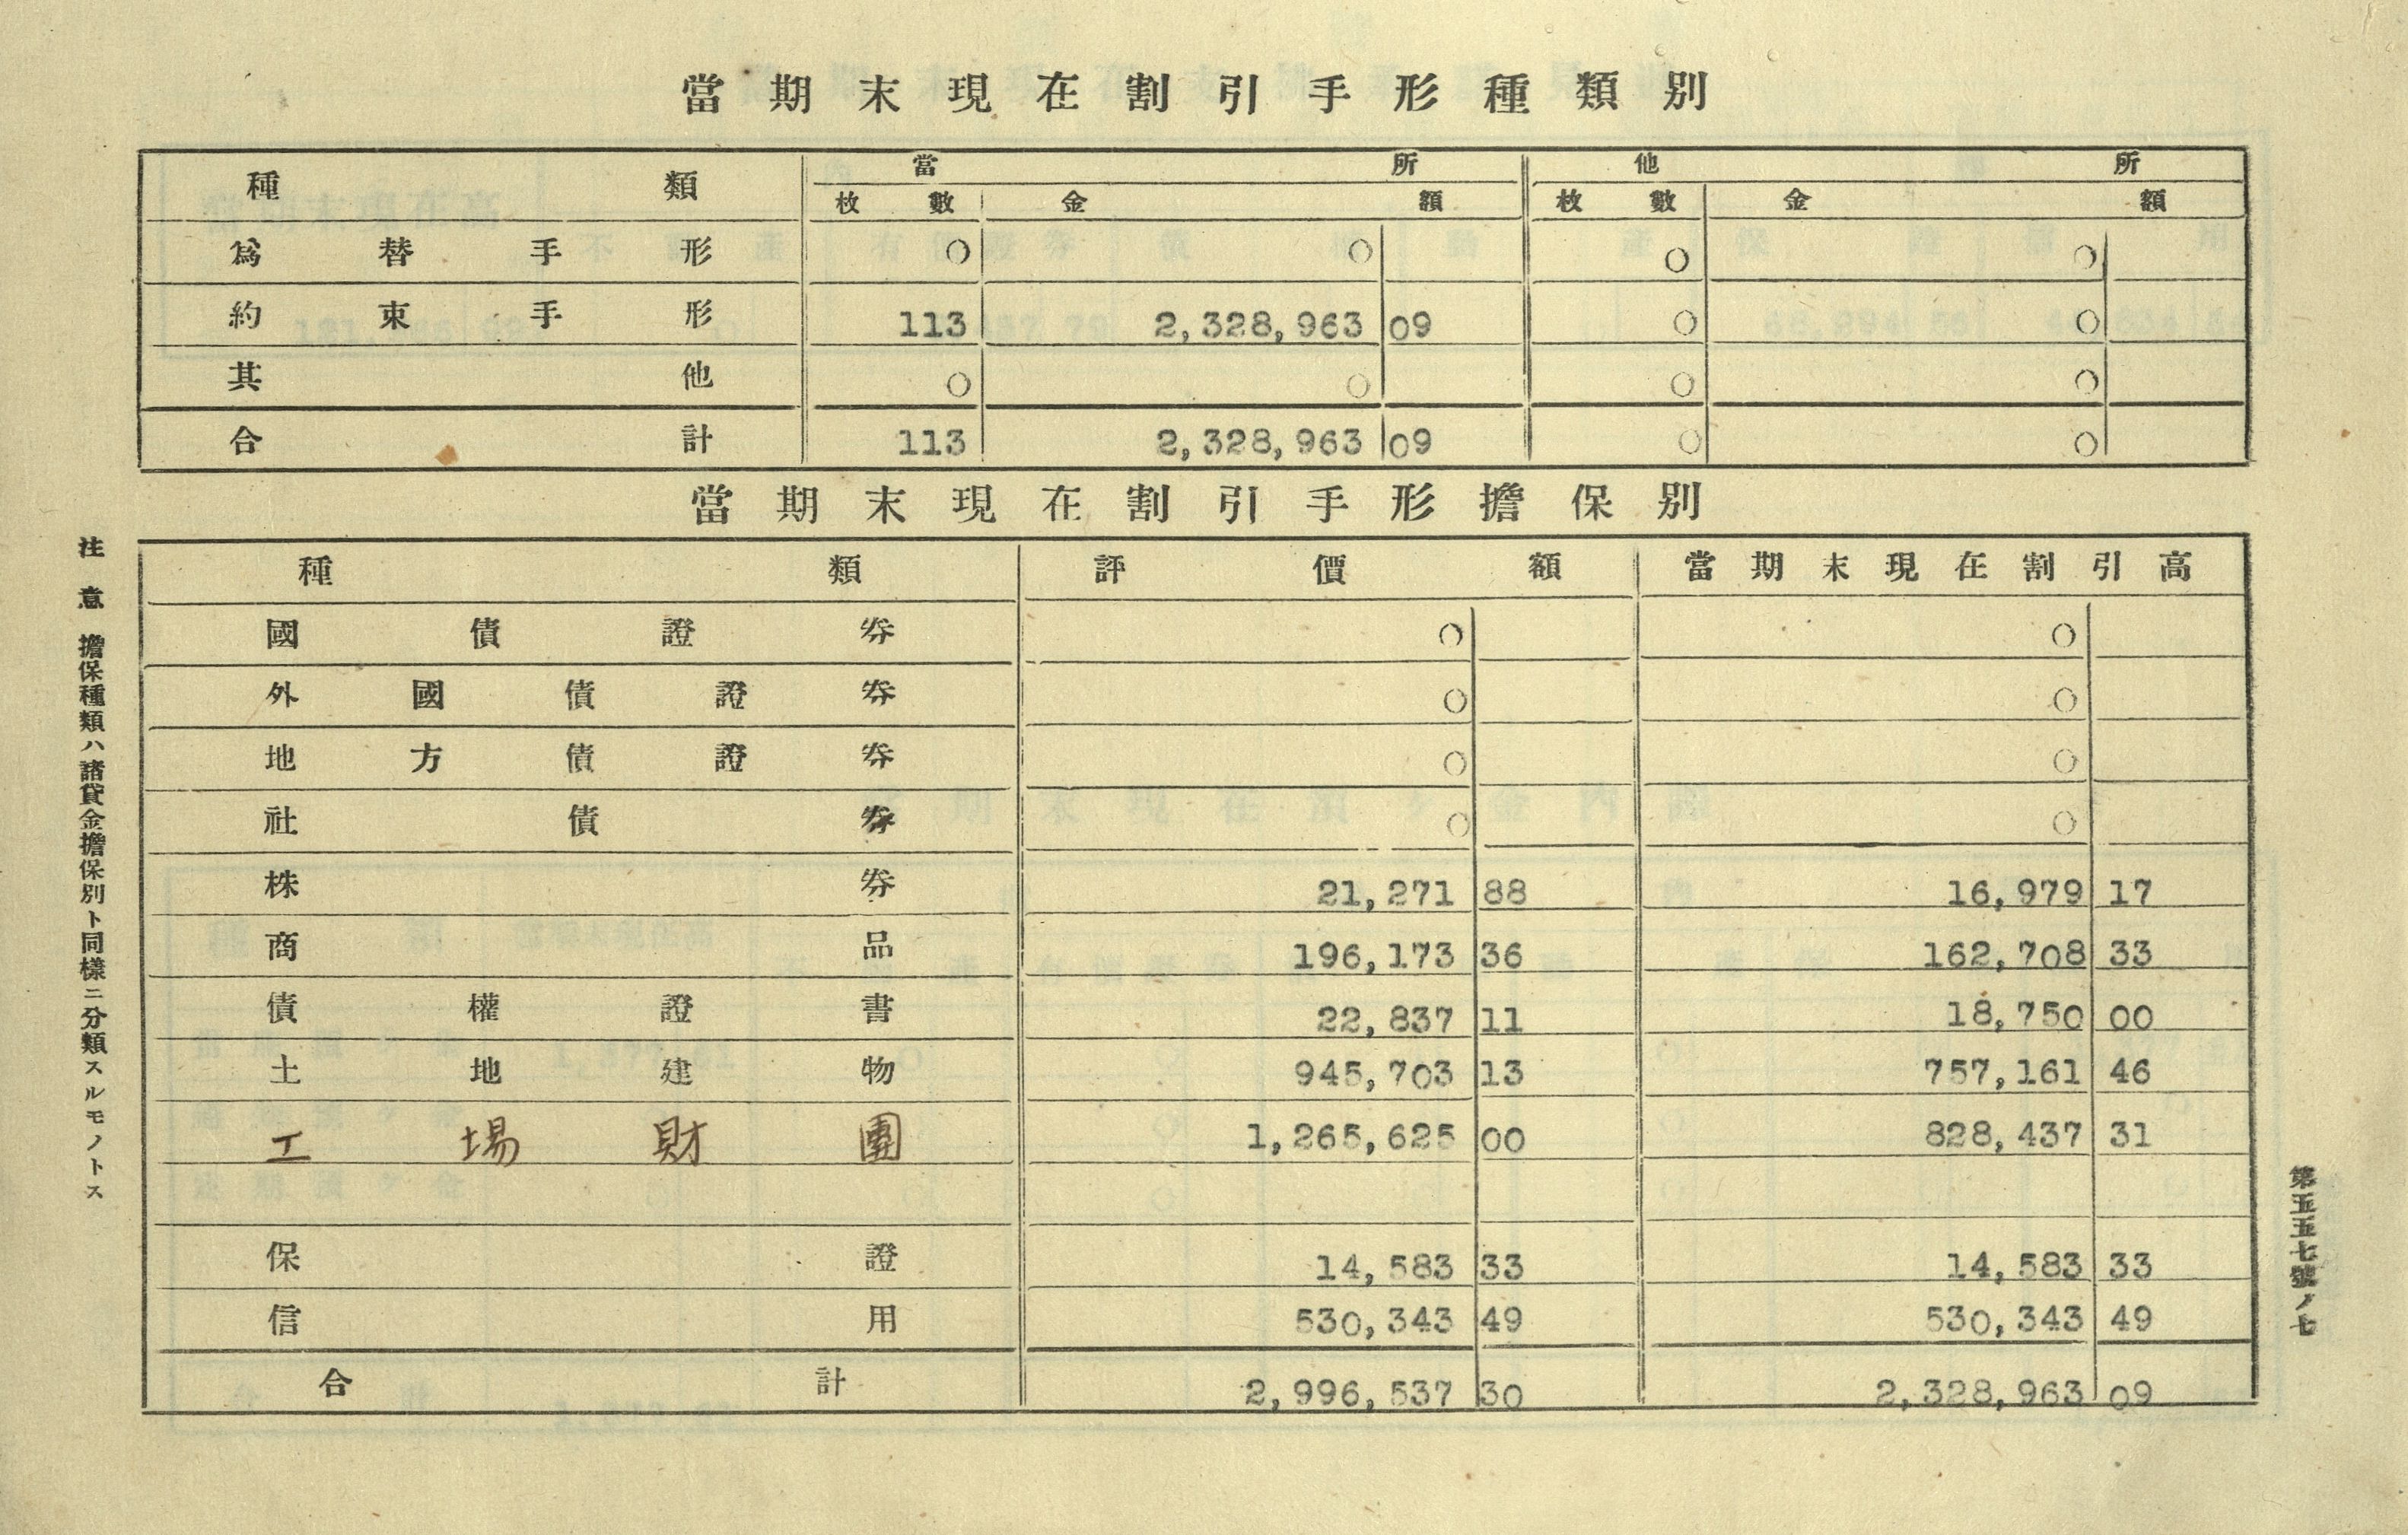 當期末現在割引手形種類別
種類 當所 他所
枚數 金額 枚數 金額
爲替手形 0 0 0 0
約束手形 113 2,328,963 09 0 0
其他 0 0 0 0
合計 113 2,328,963 09 0 0
當期末現在割引手形擔保別
種類 評價額 當期末現在割引高
國債證券 0 0
外國債證券 0 0
地方債證券 0 0
社債券 0 0
株券 21,271 88 16,979 17
商品 196,173 36 162,708 33
債權證書 22,837 11 18,750 00
土地建物 945,703 13 757,161 46
工場財團 1,265,625 00 828,437 31
保證 14,583 33 14,583 33
信用 530,343 49 530,343 49
合計 2,996,537 30 2,328,963 09
注意 擔保種類ハ諸貸金擔保別ト同樣ニ分類スルモノトス
第五五七號ノ七